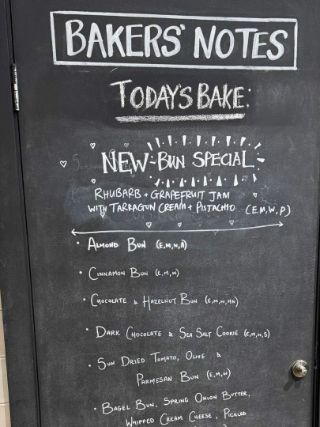 BAKERS' NOTES
TODAY'S BAKE:
NEW-BUN SPECIAL
RHUBARB + GRAPEFRUIT JAM
WITH TARRAGON CREAM + PISTACHIO (E,M,W,P)
• ALMOND BUN (E,M,W,A)
• CINNAMON BUN (E,M,W)
• CHOCOLATE & HAZELNUT BUN (E,M,W,HN)
• DARK CHOCOLATE & SEA SALT COOKIE (E,M,W,S)
• SUN DRIED TOMATO, OLIVE &
PARMESAN BUN (E,M,W)
• BAGEL BUN, SPRING ONION BUTTER,
WHIPPED CREAM CHEESE, PICKLED